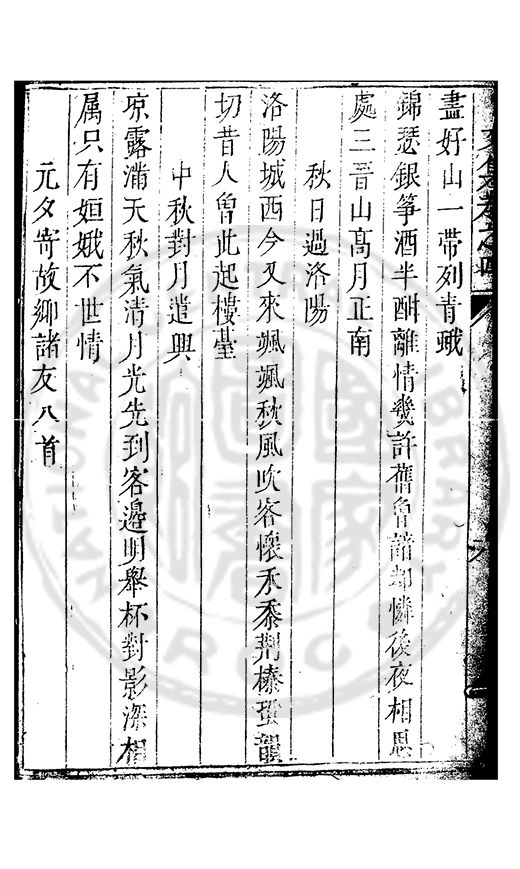 盡好山一帶列青蛾
錦瑟銀箏酒半酣離情幾許舊曾諳却憐後夜相思
處三晉山高月正南
秋日過洛陽
洛陽城西今又來颯颯秋風吹客懷禾黍荆榛蛩韻
切昔人曾此起樓臺
中秋對月遣興
凉露滿天秋氣清月光先到客邊明舉杯對影深相
属只有姮娥不世情
元夕寄故鄉諸友八首